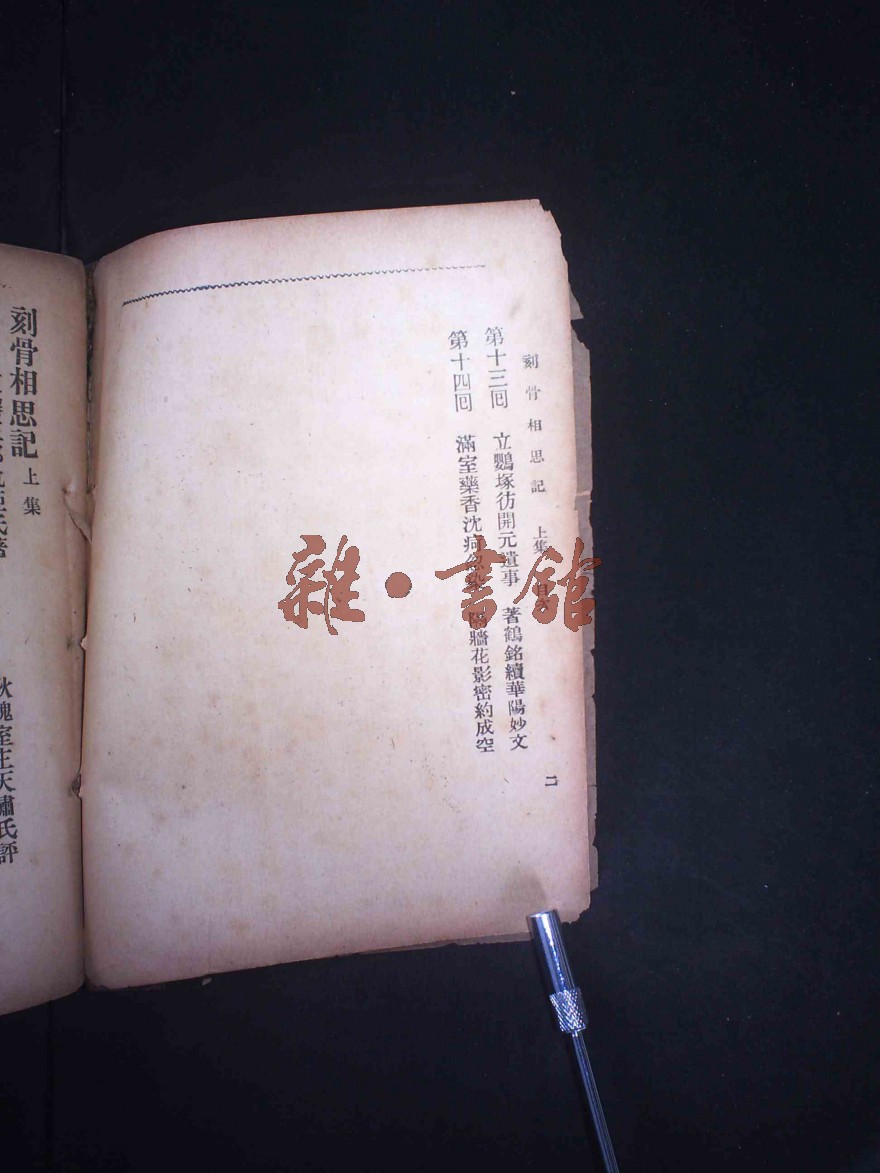 刻骨相思記 上集 目次 二
第十三囘 立鸚塚仿開元遺事 著鶴銘續華陽妙文
第十四囘 滿室藥香沈疴忽染 隔牆花影密約成空
刻骨相思記 上集
秋魂室主天嘯氏評
雜·書舘